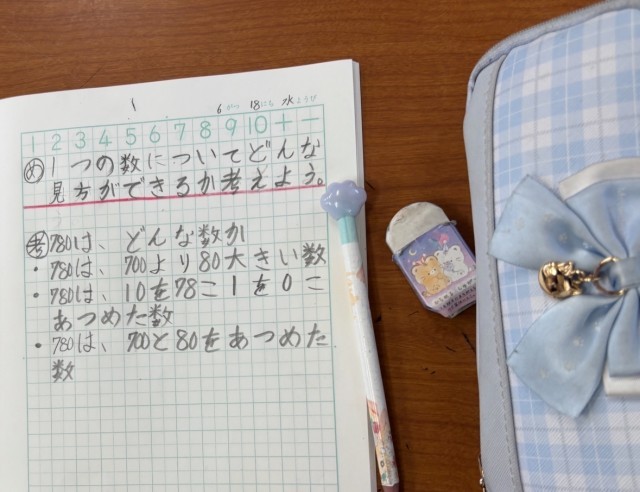 1
6がつ 18にち 水ようび
1 2 3 4 5 6 7 8 9 10 + −
め 1つの数についてどんな
見方ができるか考えよう。
考 780は、どんな数か
・780は、700より80大きい数
・780は、10を78こ1を0こ
あつめた数
・780は、700と80をあつめた
数